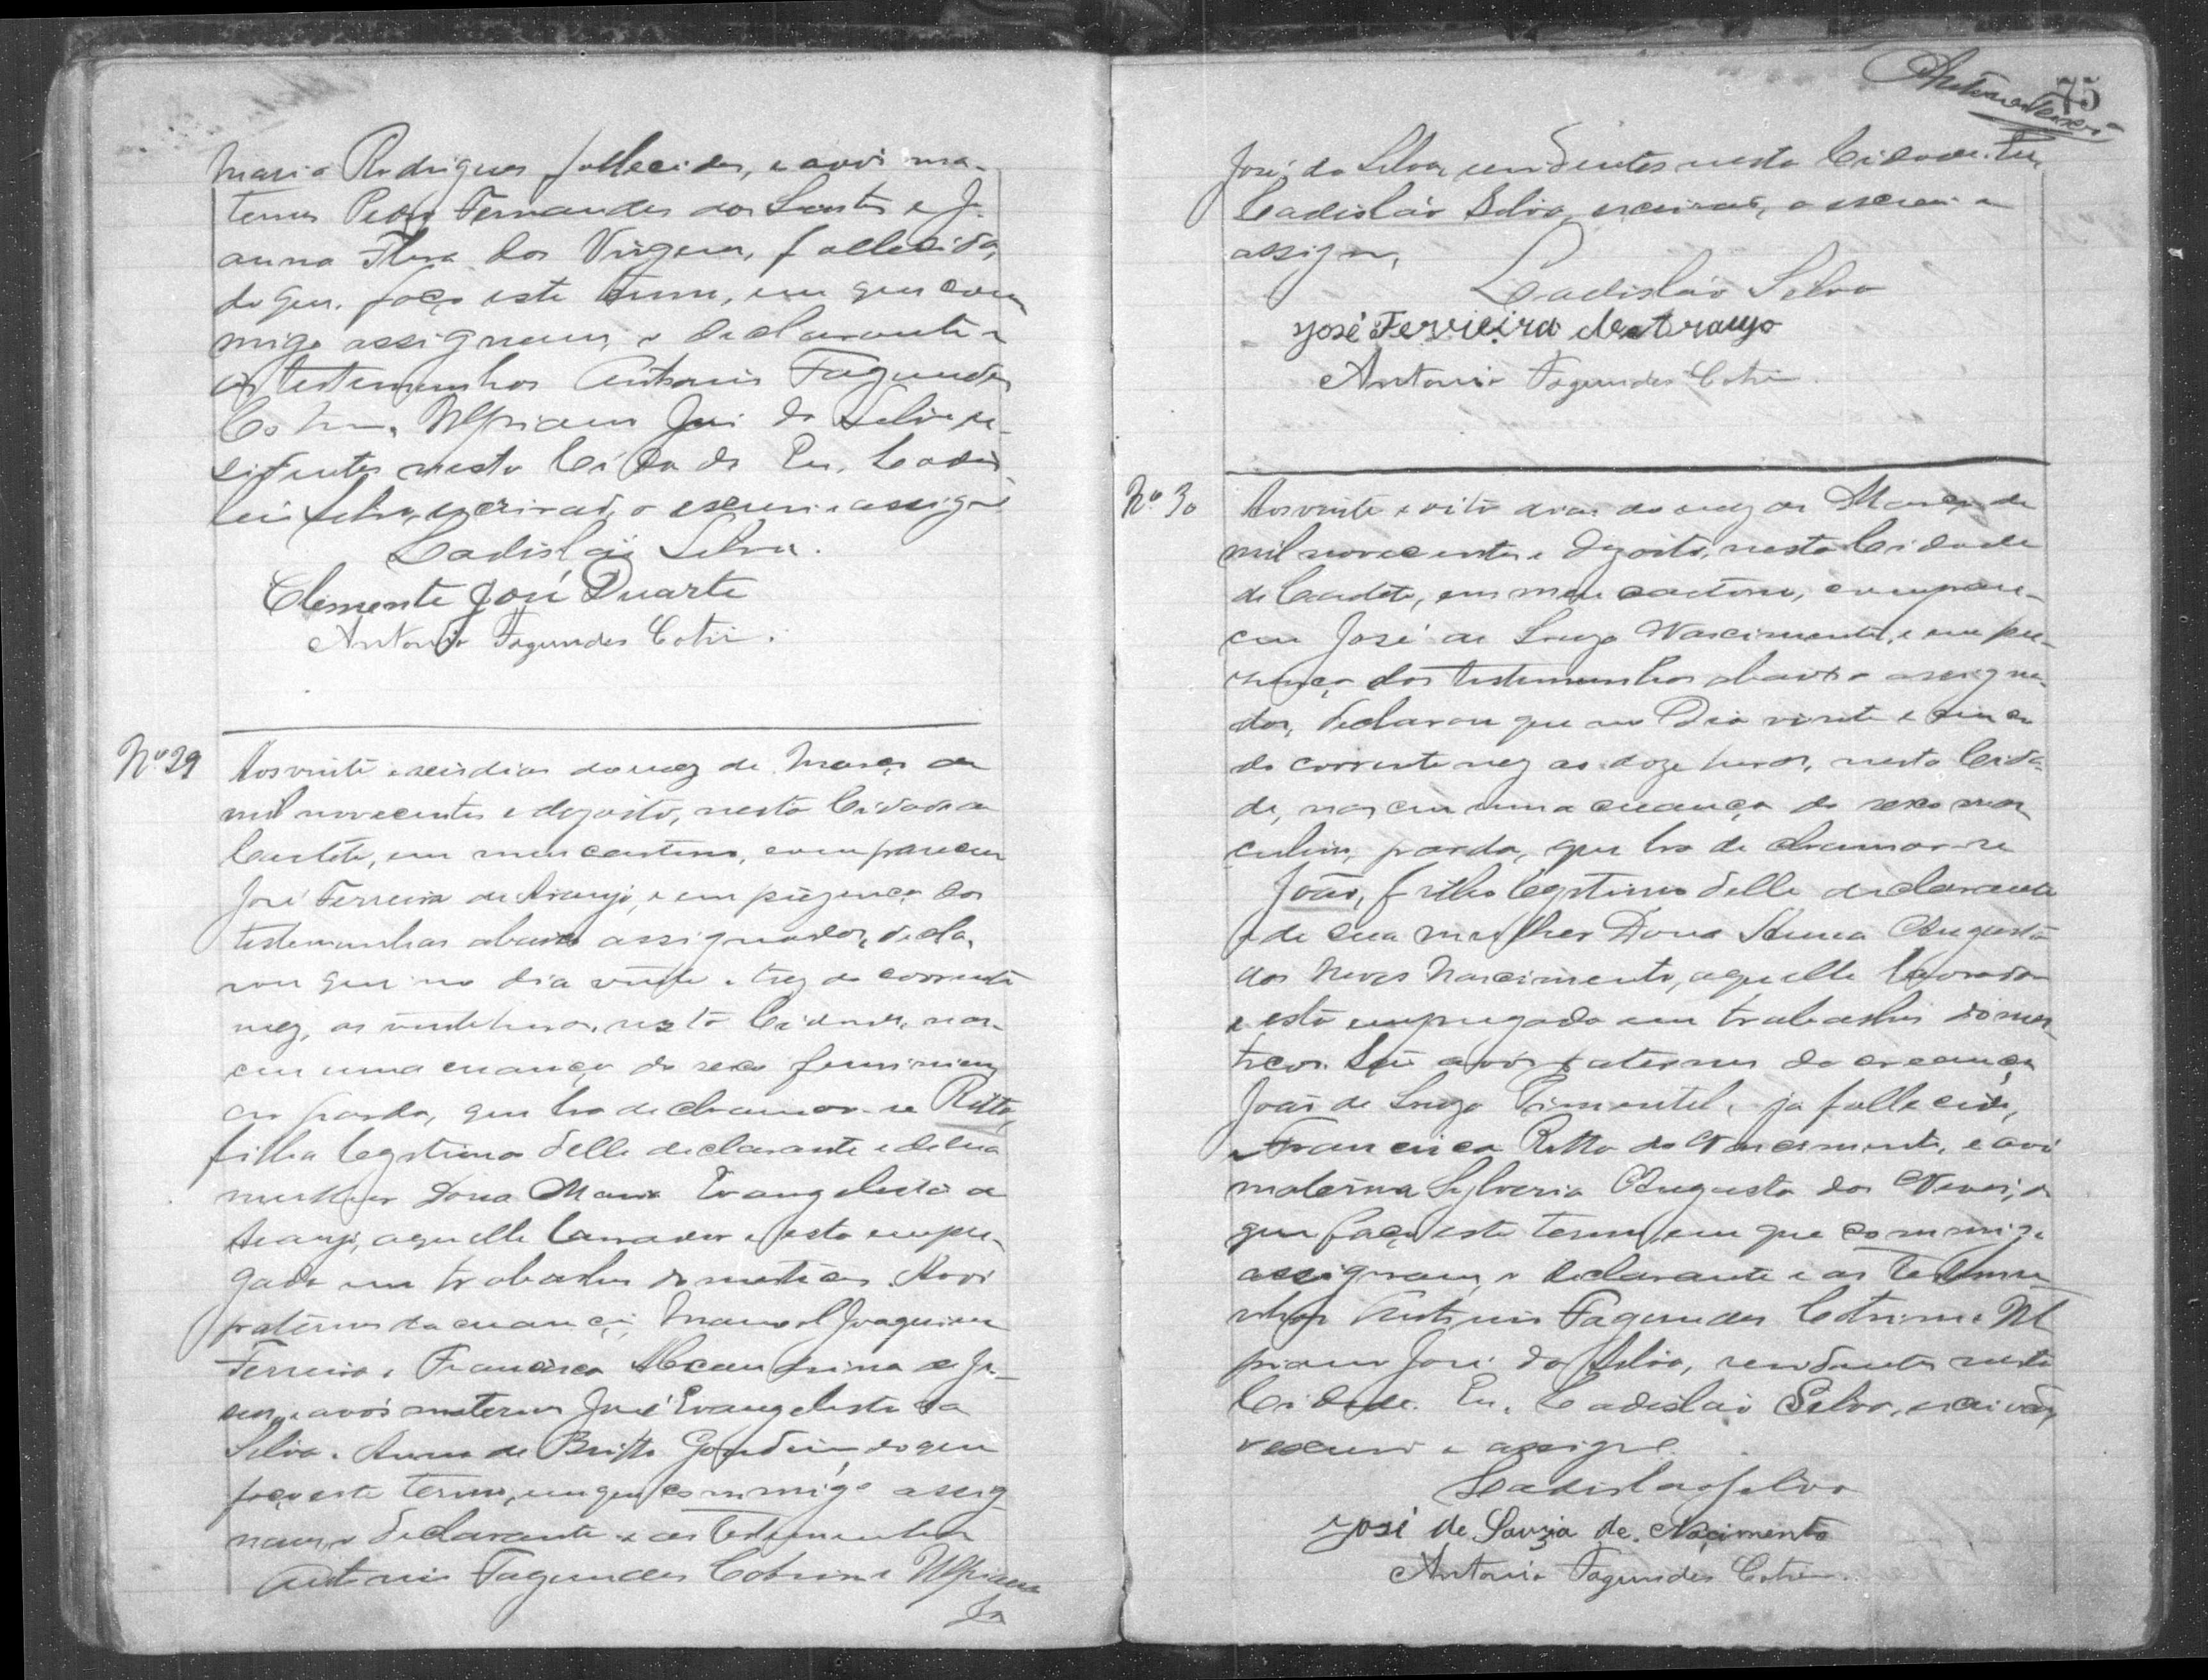 Maria Rodrigues fallecidos, e avós ma-
ternos Pedro Fernandes dos Santos e Jo-
anna Flora das Virgens, fallecida,
do que faço este termo, em que com
migo assignam, o declarante e
as testemunhas Antonio Fagundes
Cotrim e Ulpiano José da Silva re-
sidentes nesta Cidade. Eu, Ladis
láo Silva, escrivão, o escrevi e assigno
Ladisláo Silva.
Clemente José Duarte
Antonio Fagundes Cotrim.
Nº 29
Aos vinte e seis dias do mez de Março de
mil novecentos e dezoito, nesta Cidade de
Caeteté, em meu cartorio, compareceu
José Ferreira de Araujo, e em prezença das
testemunhas abaixo assignadas, decla-
rou que no dia vinte e trez do corrente
mez, as vinte horas, nesta Cidade, nas-
ceu uma creança do sexo feminino,
cor parda, que ha de chamar-se Ritta,
filha legitima delle declarante e de sua
mulher Dona Maria Evangelista de
Araujo, aquelle lavrador e esta empre-
gada em trabalhos domesticos. Avós
paternos da creança, Manoel Joaquim
Ferreira e Francisca Alexandrina de Je-
sus, e avós maternos José Evangelista da
Silva e Anna de Britto Gondim, do que
faço este termo, em que commigo assig
nam, o declarante e as testemunhas
Antonio Fagundes Cotrim e Ulpiano
Jo
75
José da Silva, residentes nesta Cidade. Eu,
Ladisláo Silva, escrivão, o escrevi e
assigno,
Ladisláo Silva
José Ferreira de Araujo
Antonio Fagundes Cotrim.
Nº 30
Aos vinte e oito dias do mez de Março de
mil novecentos e dezoito, nesta Cidade
de Caeteté, em meu cartorio, compare-
ceu José de Souza Nascimento, e em pre-
zença das testemunhas abaixo assigna-
das, declarou que no Dia vinte e cinco
do corrente mez as doze horas, nesta Cida-
de, nasceu uma creança do sexo mas
culino, parda, que ha de chamar-se
João, filho legitimo delle declarante
e de sua mulher Dona Anna Augusta
das Neves Nascimento, aquelle lavrador
e esta empregada em trabalhos domes-
ticos. São avós paternos da creança
João de Souza Pimentel, ja fallecido,
e Francisca Ritta do Nascimento, e avó
materna Sylveria Augusta das Neves, do
que faço este termo, em que commigo
assignam, o declarante e as testemu-
nhas Antonio Fagundes Cotrim e Ul
piano José da Silva, residentes nesta
Cidade. Eu, Ladisláo Silva, escrivão,
o escrevi e assigno.
Ladisláo Silva
José de Souzia de Nacimento
Antonio Fagundes Cotrim.